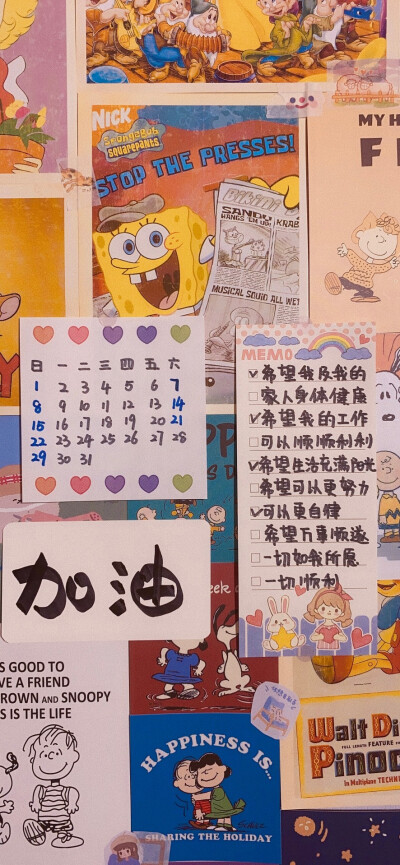 NICK
SpongeBob
SQUAREPANTS
STOP THE PRESSES!
SANDY
HANGS 'EM
KRAB
MUSICAL SQUID ALL WET
MY H
F
日 一 二 三 四 五 六
1 2 3 4 5 6 7
8 9 10 11 12 13 14
15 16 17 18 19 20 21
22 23 24 25 26 27 28
29 30 31
MEMO
希望我及我的
家人身体健康
希望我的工作
可以顺顺利利
希望生活充满阳光
希望可以更努力
可以更自健
希望万事顺遂
一切如我所愿
一切顺利
加油
S GOOD TO
VE A FRIEND
ROWN AND SNOOPY
S IS THE LIFE
HAPPINESS IS...
SHARING THE HOLIDAY
Walt Di
FULL LENGTH FEATURE
Pinoc
In Multiplane TECHN